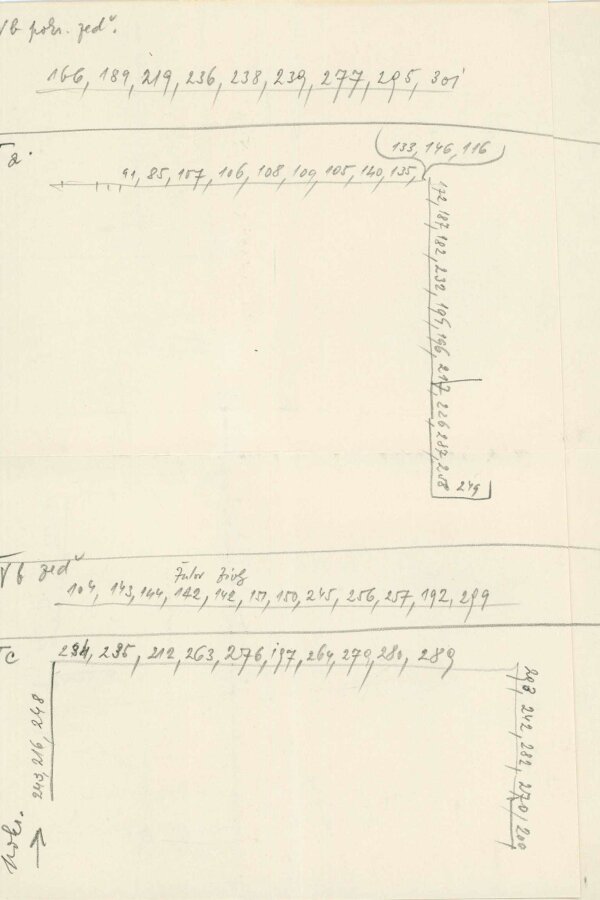 V b pokr. zeď.
166, 189, 219, 236, 238, 239, 277, 295, 301
133, 146, 116
a.
91, 85, 107, 106, 108, 109, 105, 140, 135,
172, 187, 182, 232, 194, 196, 217, 226, 287, 258
249
V b zeď
104, 143, 144, 142, 142, 151, 150, 245, 256, 257, 192, 299
c
234, 235, 212, 263, 276, 197, 264, 279, 280, 289
243, 216, 248
293, 242, 282, 270, 200
pokr.